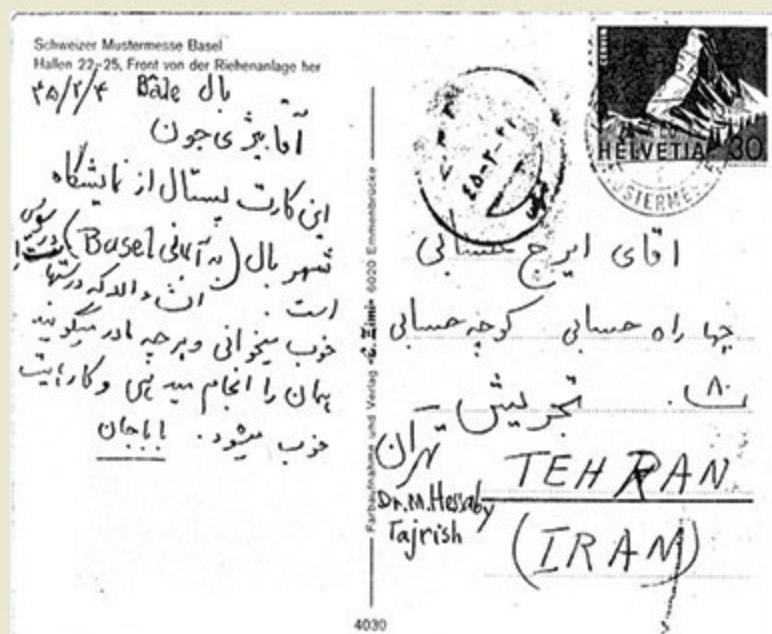 Schweizer Mustermesse Basel
Hallen 22-25, Front von der Riehenanlage her
بال Bâle ۴۵/۲/۴
آقا ایرژی جون
این کارت پستال از نمایشگاه
شهر بال (به آلمانی Basel) در سویس
است. انشاءاله که درستها
خوب میخوانی و هر چه مادر میگویند
همان را انجام میدهی و کارهایت
خوب میشود. باباجان
Farbaufnahme und Verlag 6020 Emmenbrücke
4030
HELVETIA 30
۴۵-۲-۲۱
اقای ایرج حسابی
چهار راه حسابی کوچه حسابی
پ ۸۰ تجریش -
تهران TEHRAN
Dr. M. Hessaby
Tajrish
(IRAN)